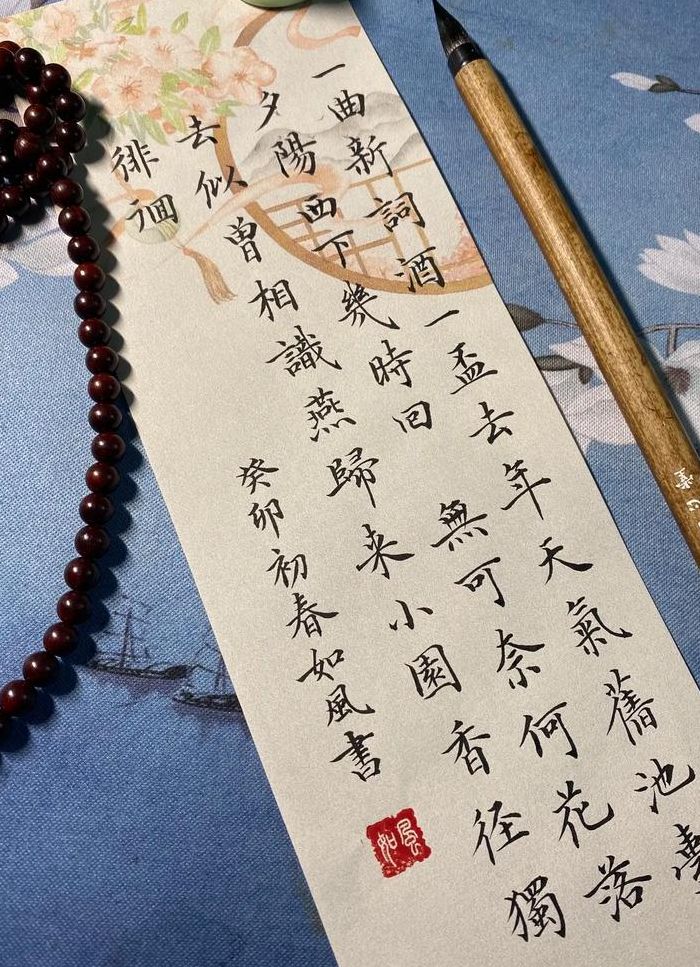 一曲新詞酒一盃去年天氣舊池
夕陽西下幾時回 無可奈何花落
去似曾相識燕歸来小園香径獨
徘徊
癸卯初春如風書
如风